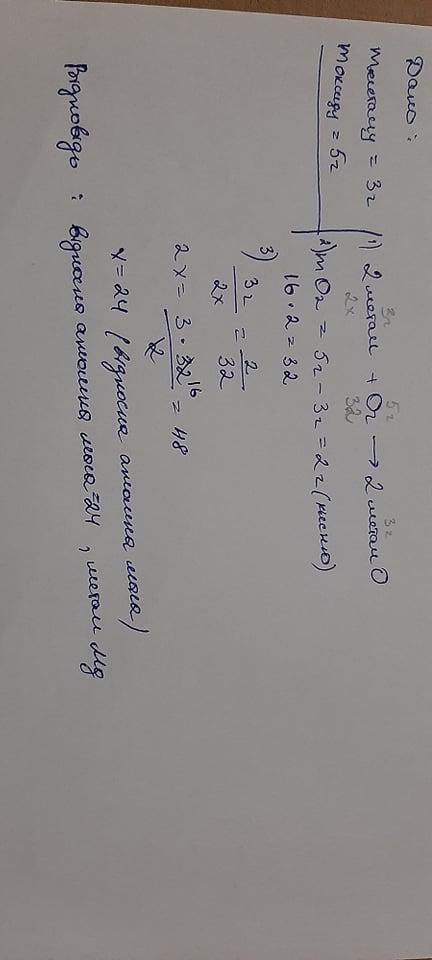 Дано:
m металу = 3г
m оксиду = 5г
1) 2 метал + O₂ → 2 метал O
3г 5г 3г
2x 32
2) m O₂ = 5г - 3г = 2г (кисню)
16 · 2 = 32
3) 3г/2x = 2/32
2x = 3 · 32 16 / 2 = 48
x = 24 (відносна атомна маса)
Відповідь: відносна атомна маса = 24, метал Mg